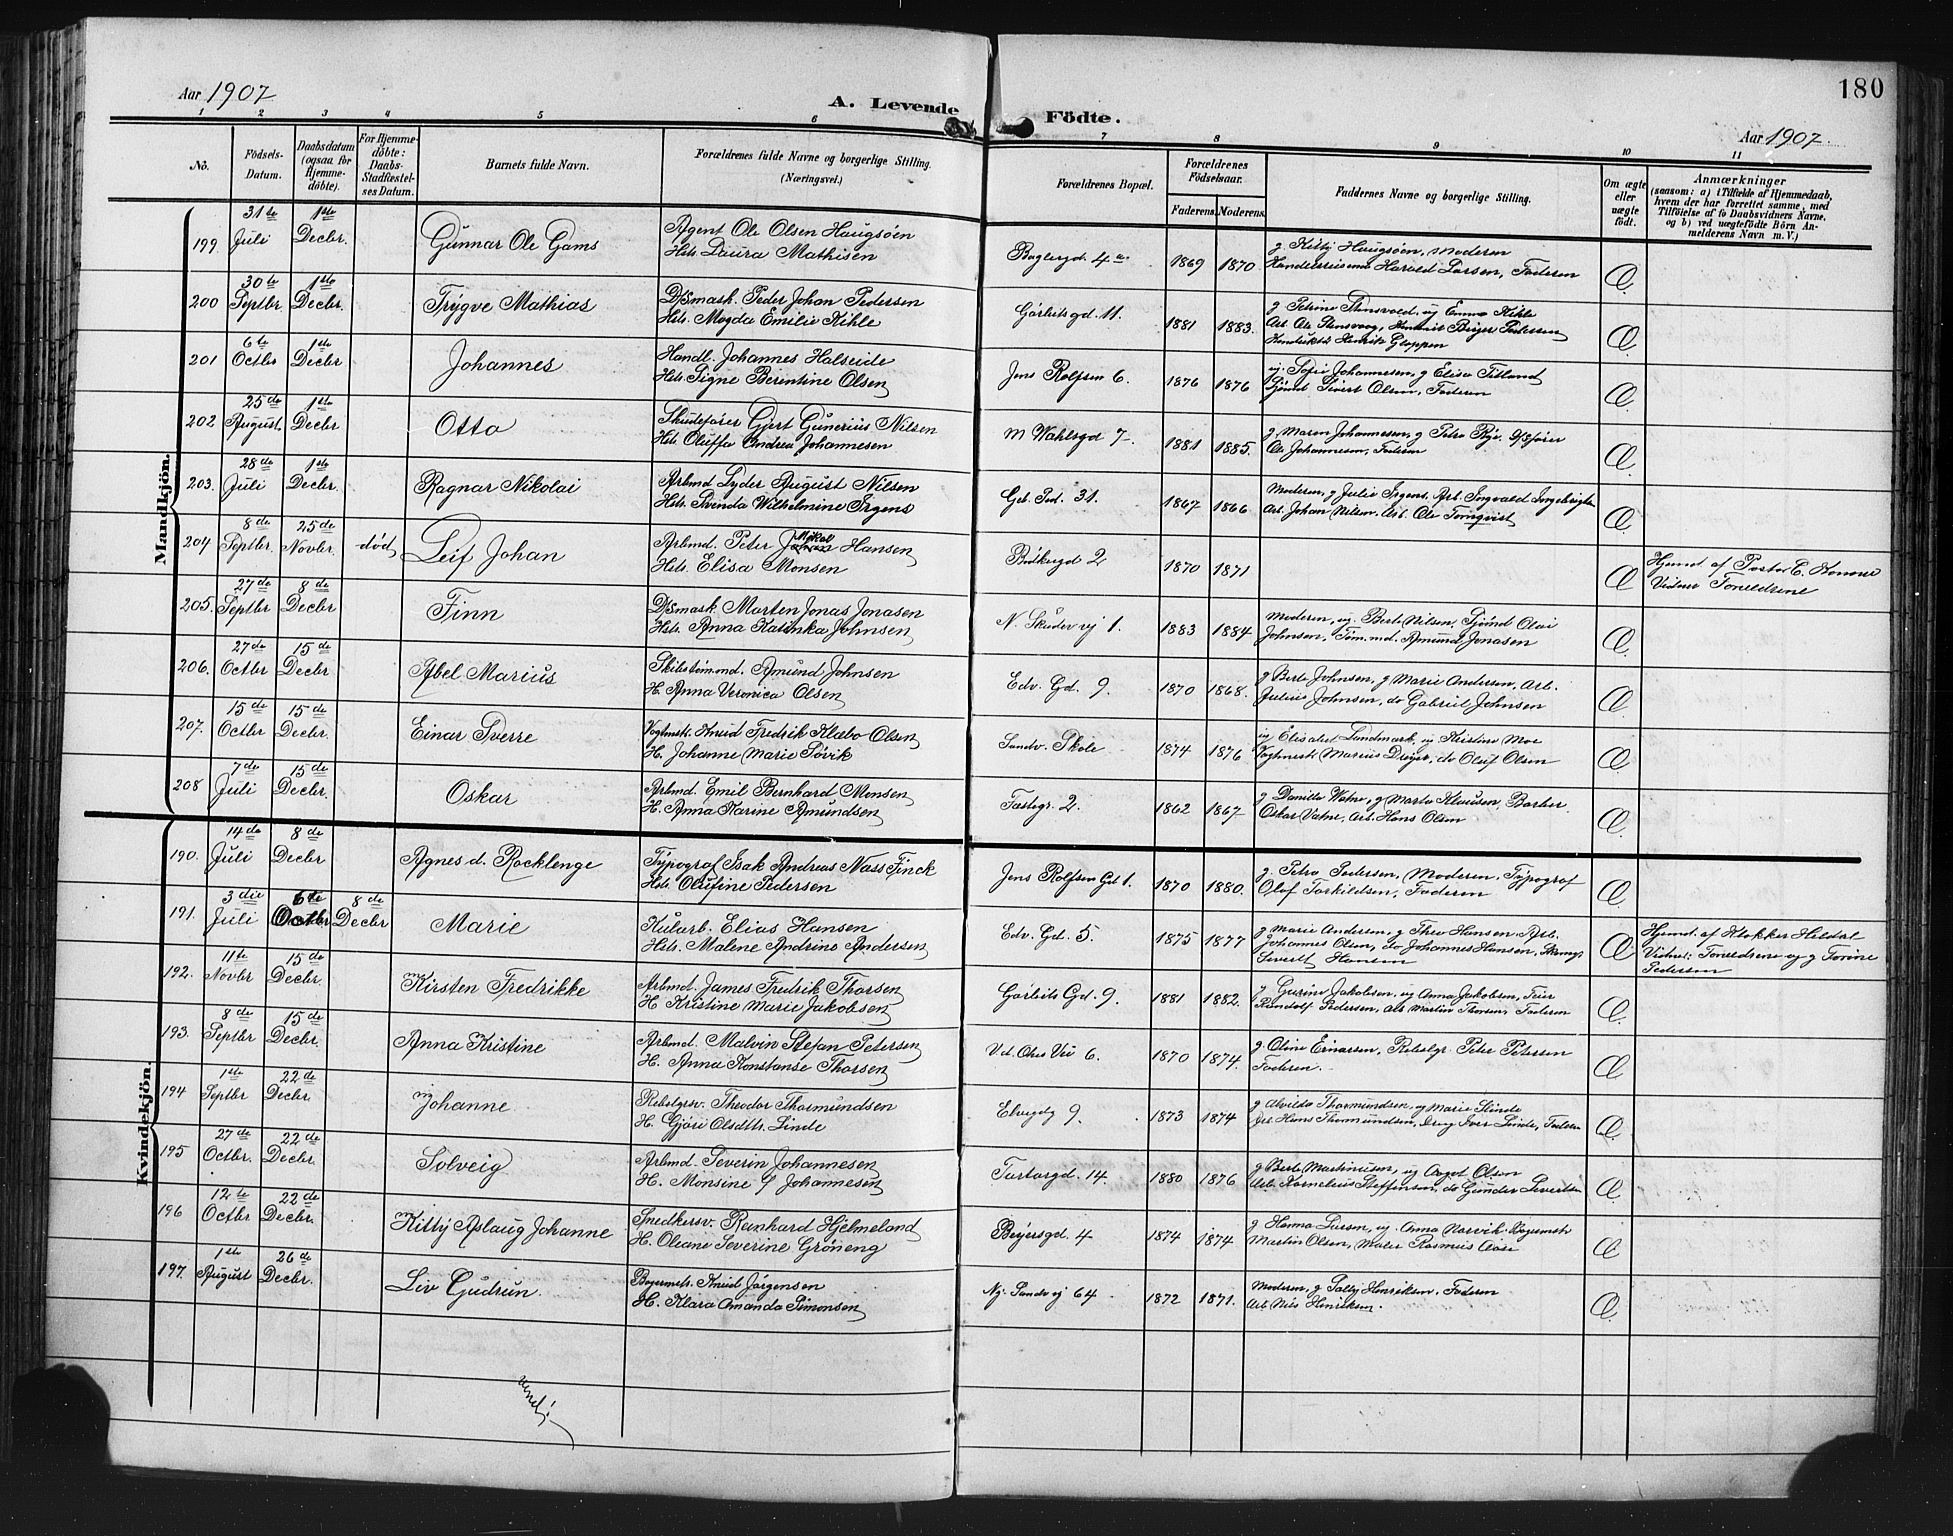 Aar 1907
A. Levende Födte.
180
Aar 1907.
1 2 3 4 5 6 7 8 9 10 11
No.
Födsels-Datum.
Daabsdatum (ogsaa for Hjemmedöbte).
For Hjemmedöbte: Daabs-Stadfæstelses Datum.
Barnets fulde Navn.
Forældrenes fulde Navne og borgerlige Stilling. (Næringsvei.)
Forældrenes Bopæl.
Forældrenes Födselsaar.
Faderens. Moderens.
Faddernes Navne og borgerlige Stilling.
Om ægte eller uægte födt.
Anmærkninger
(saasom: a) i Tilfælde af Hjemmedaab, hvem der har forrettet samme, med Tilföielse af to Daabsvidners Navne, og b) ved uægtefödte Börn Anmelderens Navn m. V.)
Mandkjön.
199. 31te Juli 1ste Decbr. Gunnar Ole Gams Agent Ole Olsen Haugsøen
Hstr. Laura Mathisen Baglergd. 4a 1869 1870 g. Kitty Haugsøen, Moderen
Handelsreisende Harald Larsen, Faderen Æ.
200 30te Septbr. 1ste Decbr. Trygve Mathias D/Smask. Peder Johan Pedersen
Hstr. Magda Emilie Kihle Gørbitsgd. 11. 1881 1883. Æ.
201 6te Octbr 1ste Decbr Johannes Handl. Johannes Halseide
Hstr. Signe Berentine Olsen Jens Rolfsen 6. 1876 1876 uj. Sofie Johannesen, g Elisa Titland
Sjømd Sivert Olsen, Faderen Æ.
202 25de August. 1ste Decbr Otto Skudefører Gjert Gunerius Nilsen
Hstr Oluffa Andrea Johannesen M Wahlsgd 7. 1881 1885. g. Maren Johannesen, g Petra Rye.
Ole Johannesen, Faderen Æ.
203. 28de Juli 1ste Decbr. Ragnar Nikolai Arbmd Lyder August Nilsen
Hstr. Svenda Wilhelmine Irgens Geb. Ped. 31. 1867 1866 Moderen, g Julie Irgens, Arb. Ingvald Ingebrigtsen
Arb. Johan Nilsen, Arb. Ole Tornqvist Æ.
204 8de Septbr. 25de Novbr. død Leif Johan Arbmd. Peter Mikal Hansen
Hstr. Elisa Monsen Bødkergd 2 1870 1871 Æ Hjemd. af Pastor C. Honoré
Vidner Forældrene
205. 27de Septbr 8de Decbr. Finn D/Smask Marten Jonas Jonasen
Hstr. Anna Katinka Johnsen N. Skudev vj 1. 1883 1884 Moderen, uj. Berte Nilsen, Sjømd Olai
Johnsen, Tøm.md. Amund Jonasen Æ.
206. 27de Octbr 15de Decbr. Abel Marius Skibstømmd. Amund Johnsen
H. Anna Veronica Olsen Edv. Gd. 9. 1870 1868. g Berte Johnsen, g Marie Andersen, Arb.
Julius Johnsen, do Gabriel Johnsen Æ.
207. 15de Octbr 15de Decbr. Einar Sverre Vogtmstr. Knud Fredrik Klæbo Olsen
H. Johanne Marie Søvik Sandv. Skole 1874 1876 uj Elisabet Landmark, uj Kristine Moe
Vogtmestr Marius Dreyer, do Oluf Olsen Æ.
208 7de Juli 15de Decbr. Oskar Arbmd. Emil Bernhard Monsen
H. Anna Karine Amundsen Fastegr. 2. 1862 1867 g Marta Klausen, Barber
Oskar Vatne, Arb. Hans Olsen Æ.
Kvindekjön.
190. 14de Juli 8de Decbr Agnes d. Rocklenge Typograf Isak Andreas Nass Finck
Hstr. Olufine Pedersen Jens Rolfsen Gd 1. 1870 1880. g. Petra Pedersen, Moderen, Typograf
Olaf Torkildsen, Faderen Æ.
191. 3die Juli 6te Octbr 8de Decbr Marie Kularb. Elias Hansen
Hstr. Malene Andrine Andersen Edv. Gd. 5. 1875 1877 g Marie Andersen, g Thea Hansen. Arb.
Johannes Olsen, do Johannes Hansen,
Severit Hansen Æ Hjemd. af Klokker Heldal
Vidner: Forældrene og g Torine
Pedersen
192. 11te Novbr 15de Decbr. Kirsten Fredrikke Arbmd. James Fredrik Thorsen
H Kristine Marie Jakobsen Gørbits Gd. 9. 1881 1882. g Gurine Jakobsen, uj Anna Jakobsen, Feier
Randolf Pedersen, Arb Martin Thorsen, Faderen Æ.
193. 8de Septbr 15de Decbr. Anna Kristine Arbmd. Malvin Stefan Petersen
H. Anna Konstanse Thorsen 6. 1870 1874. g. Oline Einarsen, Rebslgr. Peter Petersen
Faderen. Æ
194 1ste Septbr 22de Decbr. Johanne Rebslgrsv. Theodor Thormundsen
H. Gjøri Olsdtr. Linde Elvegdg 9. 1873 1874 g Alvilda Thormundsen, uj Marie Linde
Arb Hans Thormundsen, Dreng Iver Linde, Faderen Æ.
195 27de Octbr. 22de Decbr. Solveig Arbmd. Severin Johannesen
H. Monsine G Johannesen Tartargd. 14 1880 1876 g Berte Martinusen, uj Aagot Olsen
Arb. Kornelius Steffensen, do Gunder Severtsen Æ.
196 12te Octbr 22de Decbr. Kitty Aslaug Johanne Snedkersv. Reinhard Hjelmeland
H. Oleane Severine Grøneng Beyersgd. 4 1874 1874 g Hanna Larsen, uj. Anna Narvik, Bøyemstr
Martin Olsen, Maler Rasmus Aase Æ
197. 1ste August 26de Decbr. Liv Gudrun. Bøyermstr. Knud Jørgensen
H. Klara Amanda Simonsen Ny. Sandv vj 64 1872 1871. Moderen, g Sally Henriksen, Faderen
Arb. Nils Henriksen. Æ.
vend!